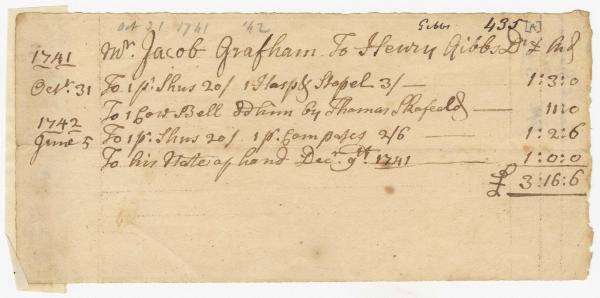 Oct 31 1741 '42 Gibbs 435 [A]
1741 Mr. Jacob Grafham To Henry Gibbs Dr
Octr. 31 To 1 pr. Shus 20/ 1 Hasp & Stapel 3/ — 1:3:0
To 1 Cow Bell dd him by Thomas — 11:0
1742
June 5 To 1 pr. Shus 20/ 1 pr. Compases 2/6 — 1:2:6
To his Note of hand Decr. 9th. 1741 — 1:0:0
£ 3:16:6